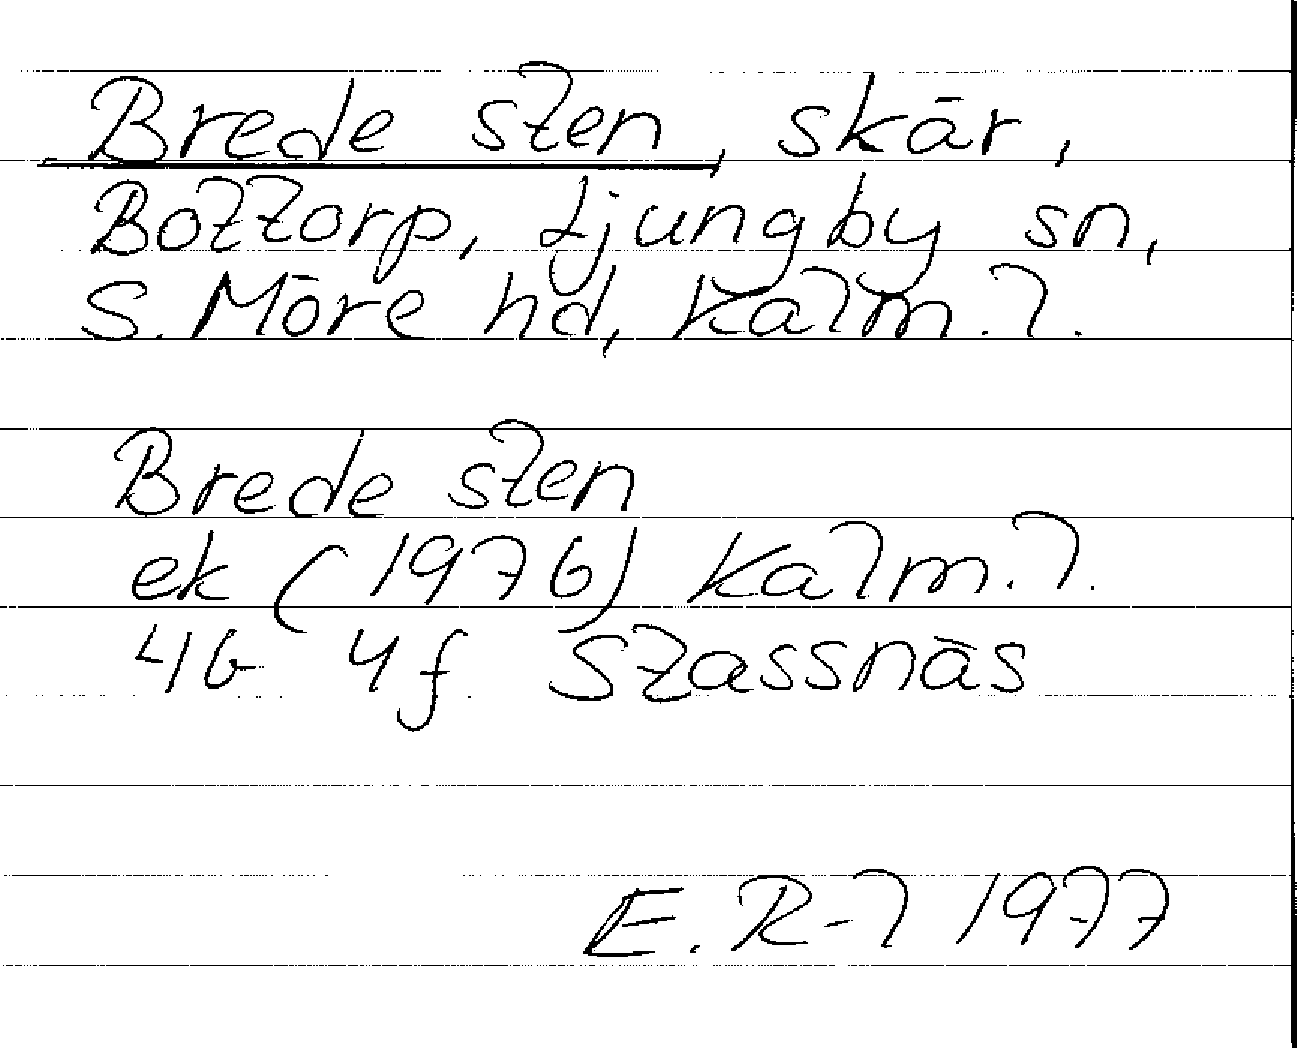 Brede sten, skär,
Bottorp, Ljungby sn,
S. Möre hd, Kalm. l.
Brede sten
ek (1976) Kalm. l.
4G 4f Stassnäs
E. R-l 1977